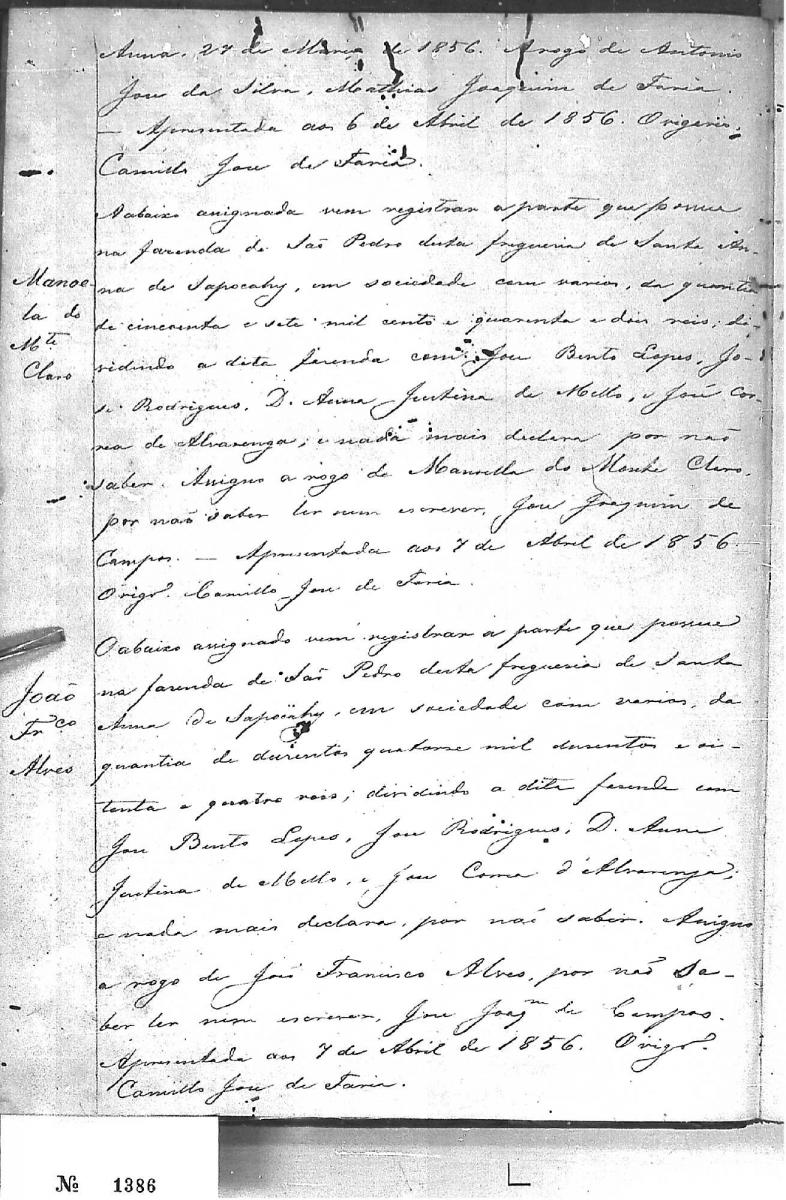 Anna, 27 de Março de 1856. A rogo de Antonio
Jose da Silva, Mathias Joaquim de Faria.
— Apresentada aos 6 de Abril de 1856. O vigerio,
Camillo Jose de Faria.
Manoe-
la do
Mte
Claro
A abaixo assignada vem registrar a parte que possue
na fazenda de São Pedro desta freguesia de Santa An-
na de Sapocahy, em sociedade com varios, da quantia
de cincoenta e sete mil cento e quarenta e dois reis; di-
vidindo a dita fazenda com Jose Bento Lopes, Jo-
se Rodrigues, D. Anna Justina de Mello, e José Cor-
rea de Alvarenga; e nada mais declara por não
saber. Assigno a rogo de Manoella do Monte Claro,
por não saber ler nem escrever, Jose Joaquim de
Campos. — Apresentada aos 7 de Abril de 1856.
O vigro. Camillo Jose de Faria.
João
Frco
Alves
O abaixo assignado vem registrar a parte que possue
na fazenda de São Pedro desta freguesia de Santa
Anna de Sapocahy, em sociedade com varios, da
quantia de dusentos quatorse mil dusentos e oi-
tenta e quatro reis; dividindo a dita fazenda com
Jose Bento Lopes, Jose Rodrigues, D. Anna
Justina de Mello, e Jose Correa d'Alvarenga;
e nada mais declara, por não saber. Assigno
a rogo de João Francisco Alves, por não sa-
ber ler nem escrever, Jose Joaqm de Campos.
Apresentada aos 7 de Abril de 1856. O vigro.
Camillo Jose de Faria.
Nº 1386